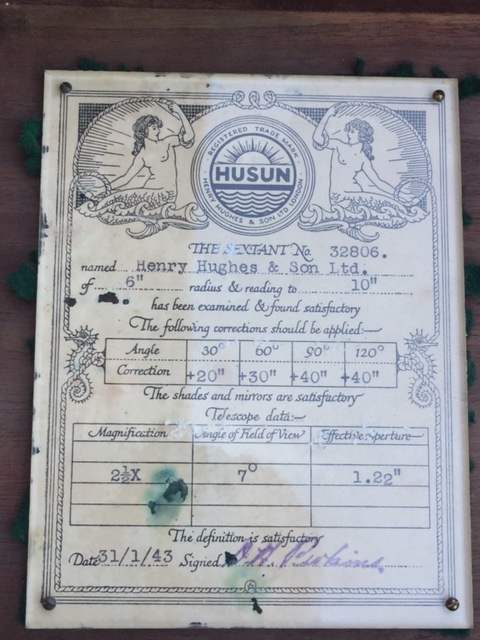 REGISTERED TRADE MARK
HUSUN
HENRY HUGHES & SON LTD LONDON
THE SEXTANT No. 32806.
named Henry Hughes & Son Ltd.
of 6" radius & reading to 10"
has been examined & found satisfactory
The following corrections should be applied:—
Angle 30° 60° 90° 120°
Correction +20" +30" +40" +40"
The shades and mirrors are satisfactory
Telescope data:—
Magnification Angle of Field of View Effective Aperture
2½X 7° 1.22"
The definition is satisfactory
Date 31/1/43 Signed